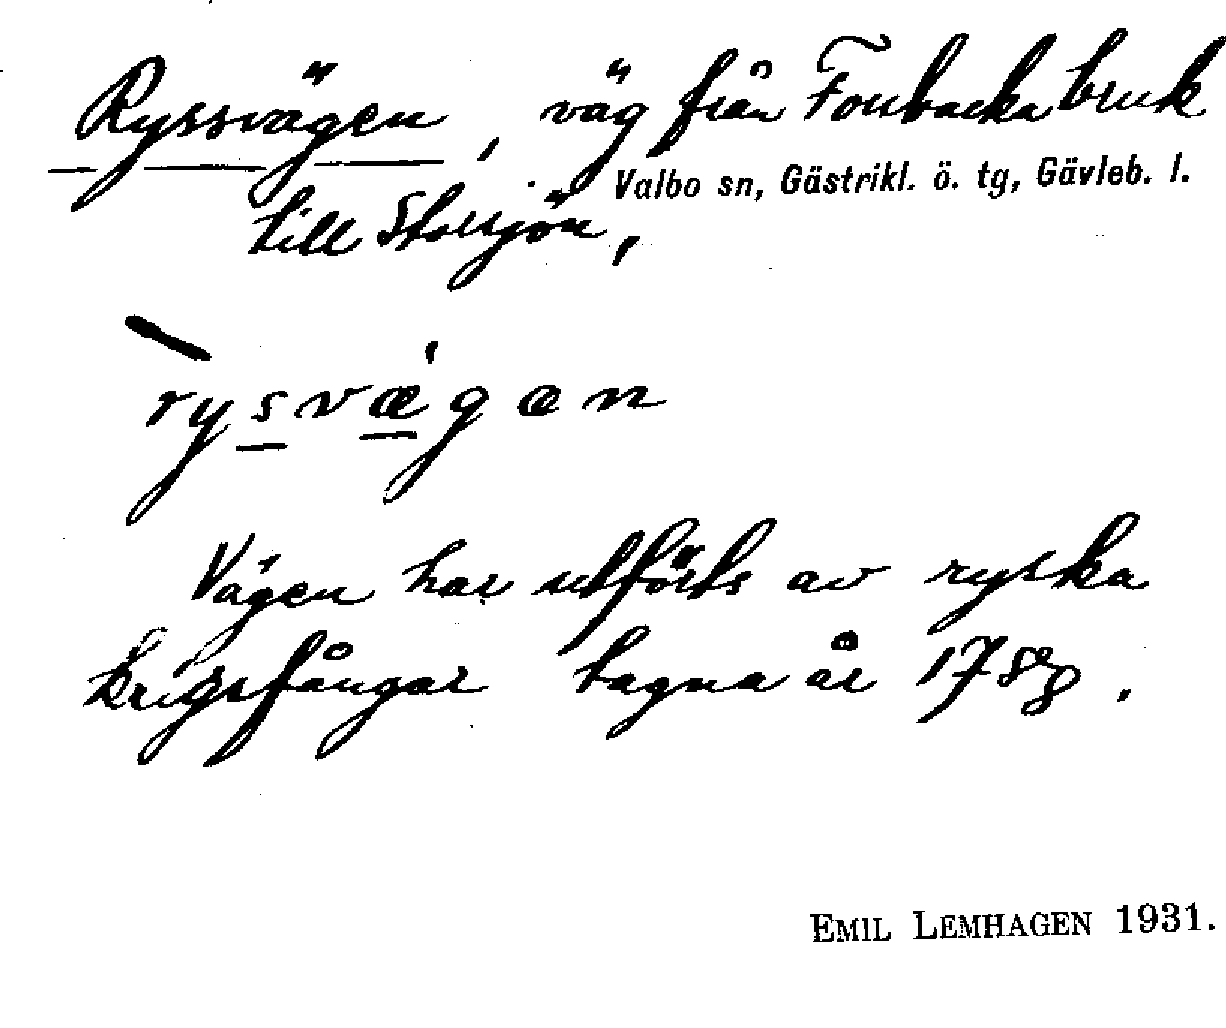 Ryssvägen, väg från Forsbacka bruk
Valbo sn, Gästrikl. ö. tg, Gävleb. l.
till Storsjön,
rysvægen
Vägen har utförts av ryska
krigsfångar tagna år
EMIL LEMHAGEN 1931.